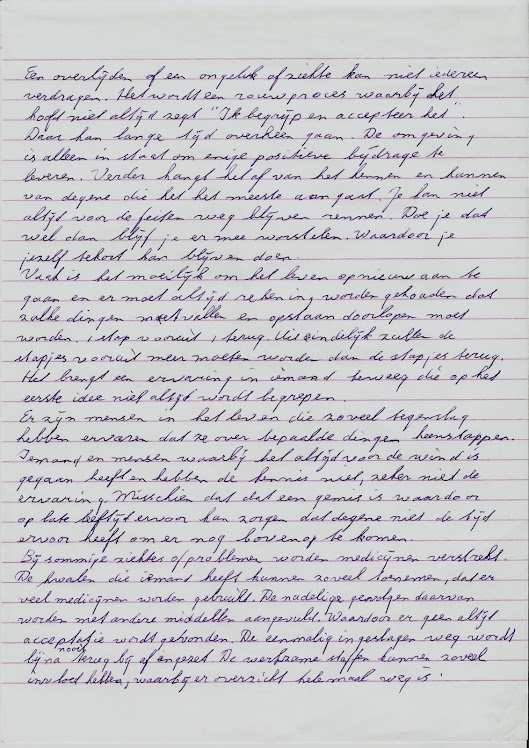 Een overlijden of een ongeluk of ziekte kan niet iedereen
verdragen. Het wordt een rouwproces waarbij het
hoofd niet altijd zegt "Ik begrijp en accepteer het".
Daar kan lange tijd overheen gaan. De omgeving
is alleen in staat om enige positieve bijdrage te
leveren. Verder hangt het af van het kennen en kunnen
van degene die het het meeste aangaat. Je kan niet
altijd voor de feiten weg blijven rennen. Doe je dat
wel dan blijf je er mee worstelen. Waardoor je
jezelf tekort kan blijven doen.
Vaak is het moeilijk om het leven opnieuw aan te
gaan en er moet altijd rekening worden gehouden dat
zulke dingen met vallen en opstaan doorlopen moet
worden. 1 stap vooruit, 1 terug. Uiteindelijk zullen de
stapjes vooruit meer moeten worden dan de stapjes terug.
Het brengt een ervaring in iemand teweeg die op het
eerste idee niet altijd wordt begrepen.
Er zijn mensen in het leven die zoveel tegenslag
hebben ervaren dat ze over bepaalde dingen heenstappen.
Iemand en mensen waarbij het altijd voor de wind is
gegaan heeft en hebben de kennis niet, zeker niet de
ervaring. Misschien dat dat een gemis is waardoor
op late leeftijd ervoor kan zorgen dat degene niet de tijd
ervoor heeft om er nog bovenop te komen.
Bij sommige ziektes of problemen worden medicijnen verstrekt.
De kwalen die iemand heeft kunnen zoveel toenemen, dat er
veel medicijnen worden gebruikt. De nadelige gevolgen daarvan
worden met andere middelen aangevuld. Waardoor er geen altijd
acceptatie wordt gevonden. De eenmalig ingeslagen weg wordt
bijna nooit terug bij of ingezet. De werkzame stoffen kunnen zoveel
invloed hebben, waarbij er overzicht helemaal weg is.